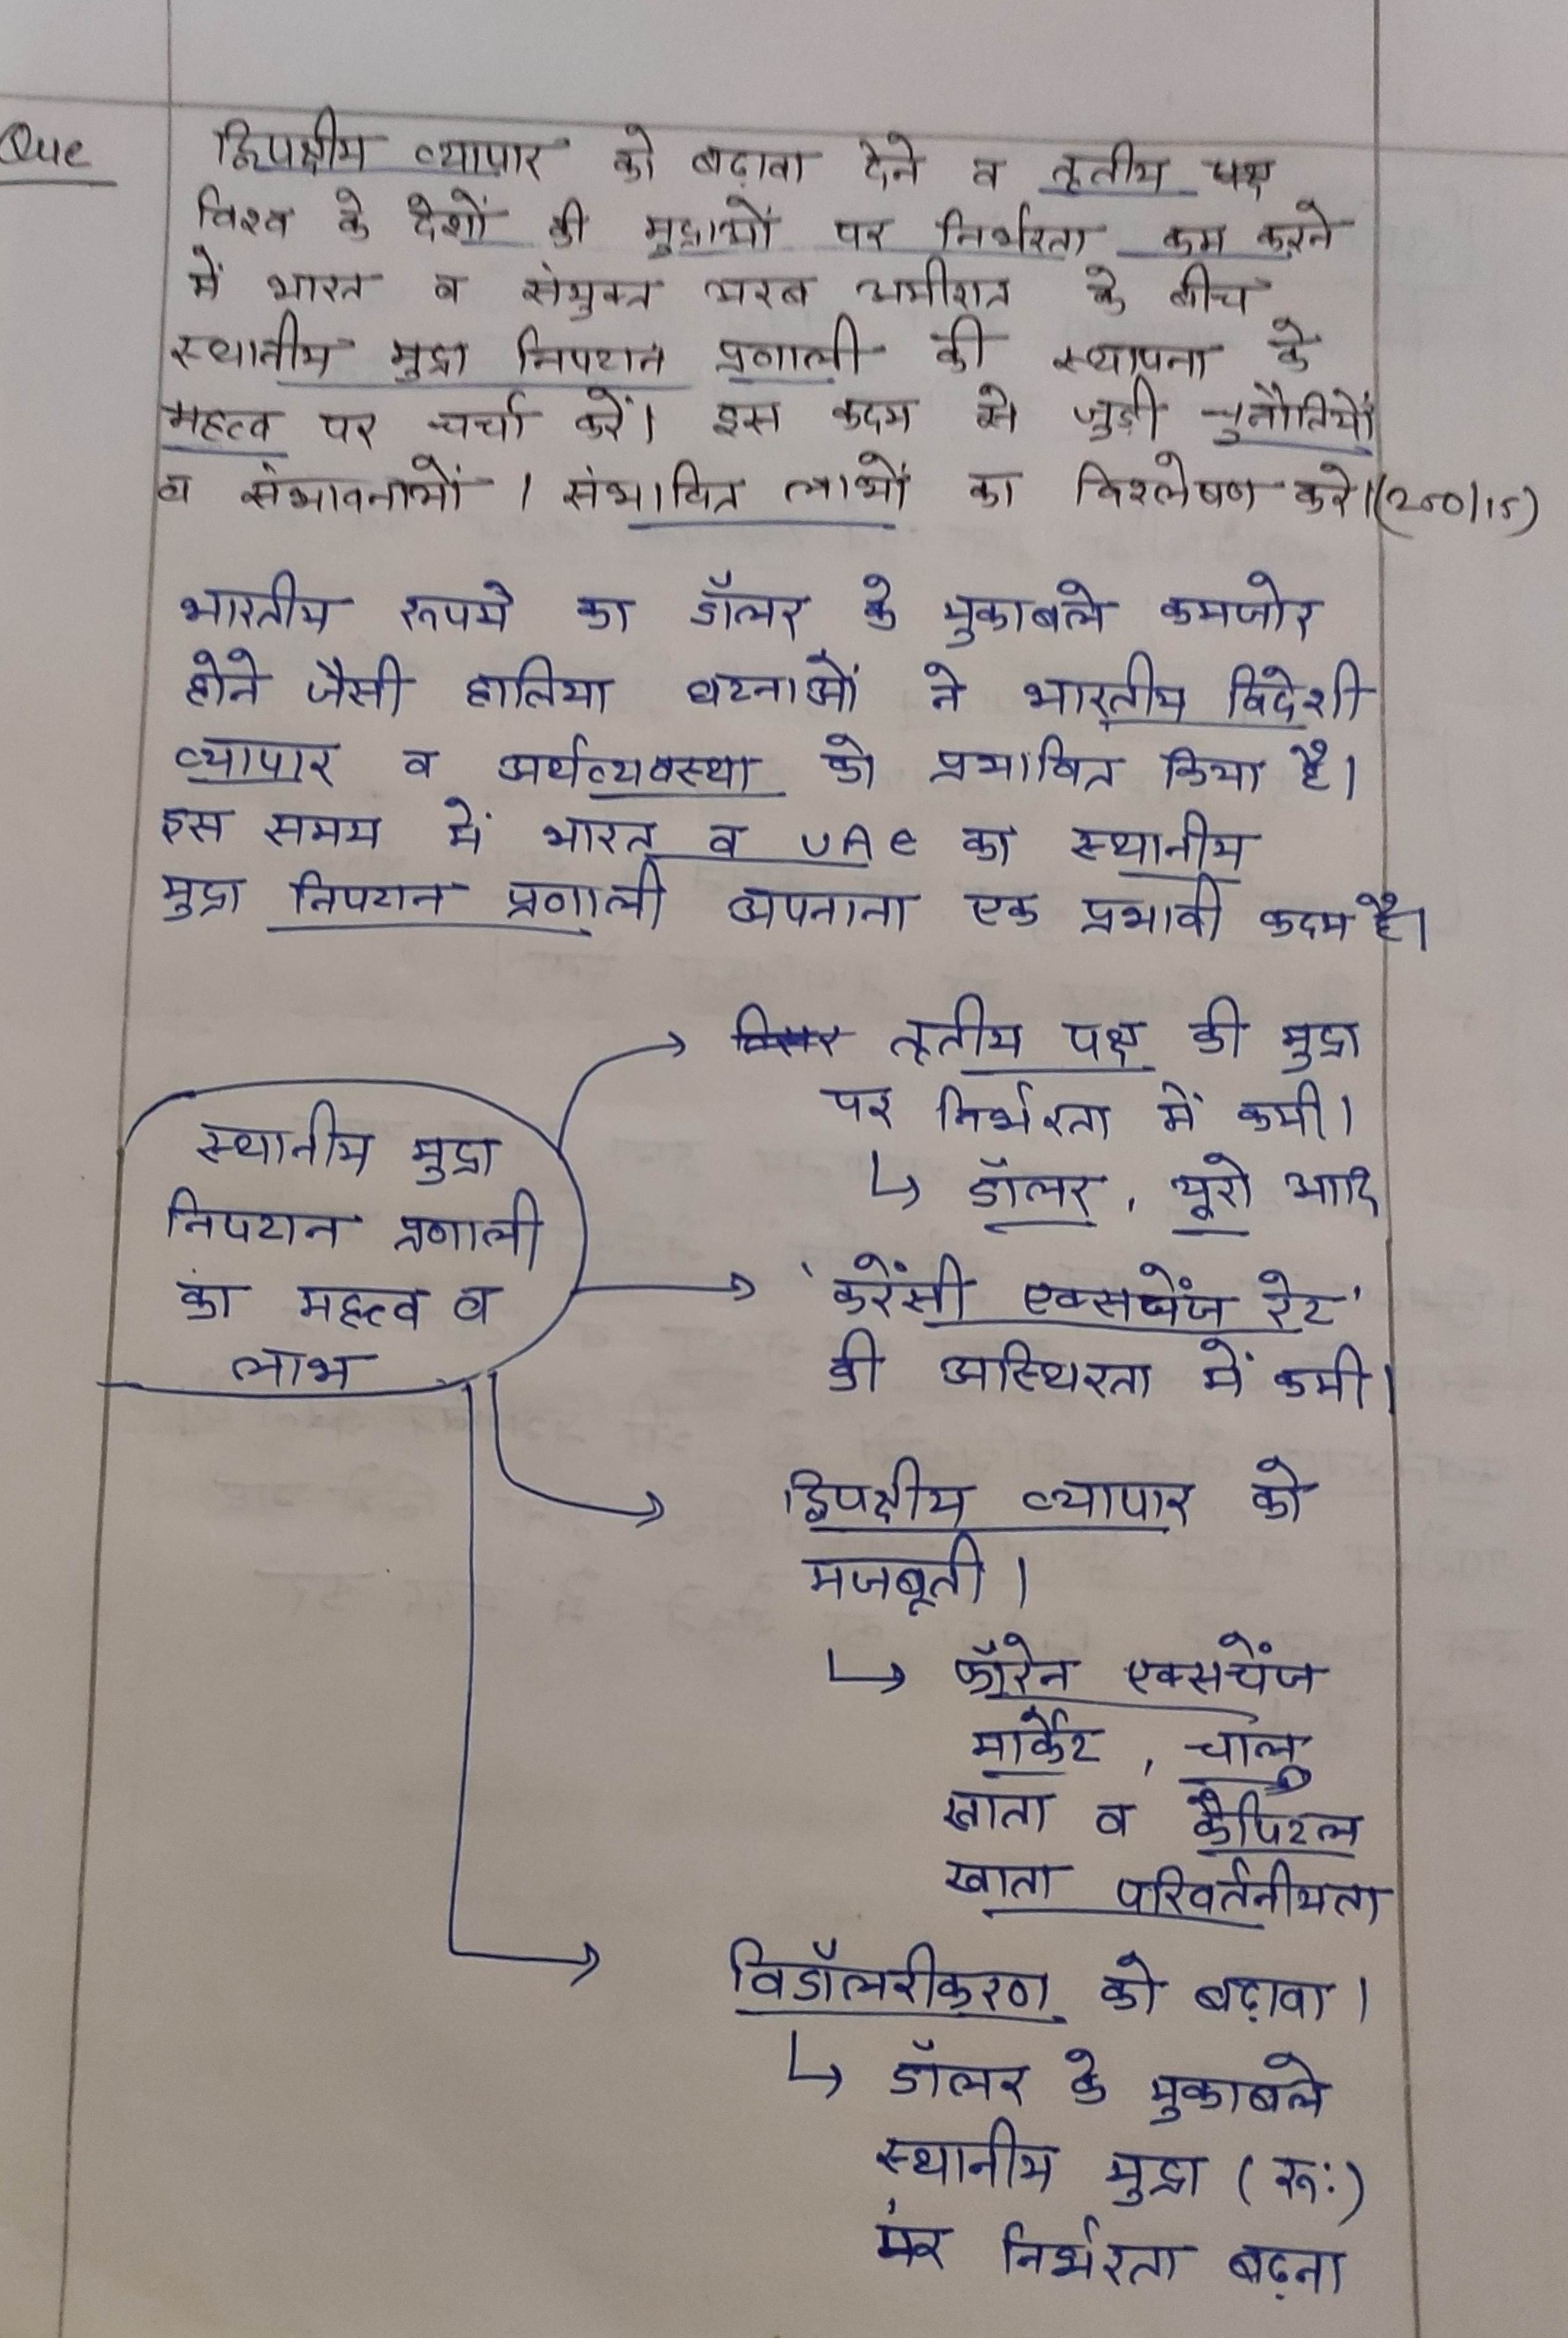 Que द्विपक्षीय व्यापार को बढ़ावा देने व तृतीय पक्ष
विश्व के देशों की मुद्राओं पर निर्भरता कम करने
में भारत व संयुक्त अरब अमीरात के बीच
स्थानीय मुद्रा निपटान प्रणाली की स्थापना के
महत्व पर चर्चा करें। इस कदम से जुड़ी चुनौतियों
व संभावनाओं / संभावित लाभों का विश्लेषण करें।(250/15)
भारतीय रूपये का डॉलर के मुकाबले कमजोर
होने जैसी हालिया घटनाओं ने भारतीय विदेशी
व्यापार व अर्थव्यवस्था को प्रभावित किया है।
इस समय में भारत व UAE का स्थानीय
मुद्रा निपटान प्रणाली अपनाना एक प्रभावी कदम है।
स्थानीय मुद्रा
निपटान प्रणाली
का महत्व व
लाभ
तृतीय पक्ष की मुद्रा
पर निर्भरता में कमी।
↳ डॉलर, यूरो आदि
'करेंसी एक्सचेंज रेट'
की अस्थिरता में कमी।
द्विपक्षीय व्यापार को
मजबूती।
↳ फॉरेन एक्सचेंज
मार्केट, चालु
खाता व कैपिटल
खाता परिवर्तनीयता
विडॉलरीकरण को बढ़ावा।
↳ डॉलर के मुकाबले
स्थानीय मुद्रा (रू:)
पर निर्भरता बढ़ना